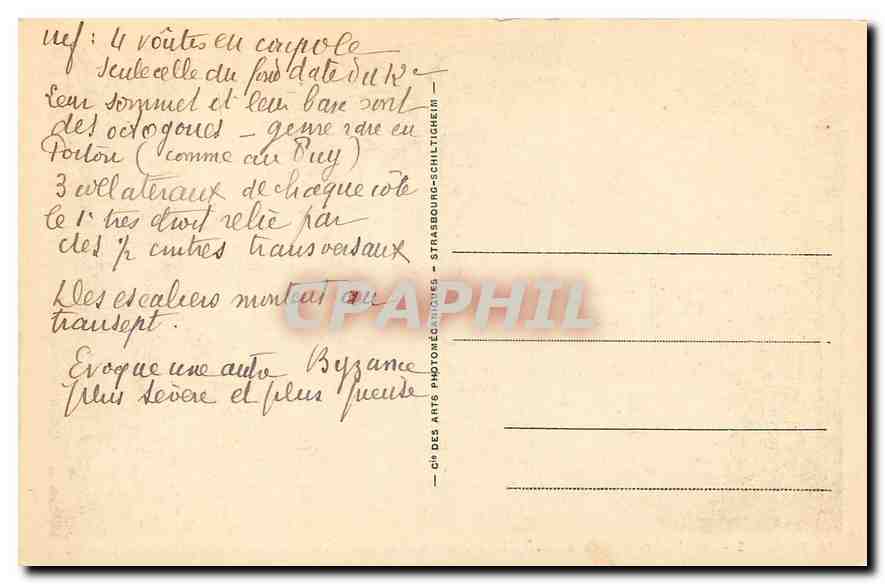 nef : 4 voûtes en coupole
seule celle du fond date du 12e
Leur sommet et leur base sont
des octogones - genre rare en
Poitou (comme au Puy)
3 collatéraux de chaque côté
le 1r très droit relié par
des 1/2 cintres transversaux
Des escaliers montent au
transept.
Evoque une autre Byzance
plus sévère et plus
— Cie DES ARTS PHOTOMÉCANIQUES - STRASBOURG-SCHILTIGHEIM —
CPAPHIL